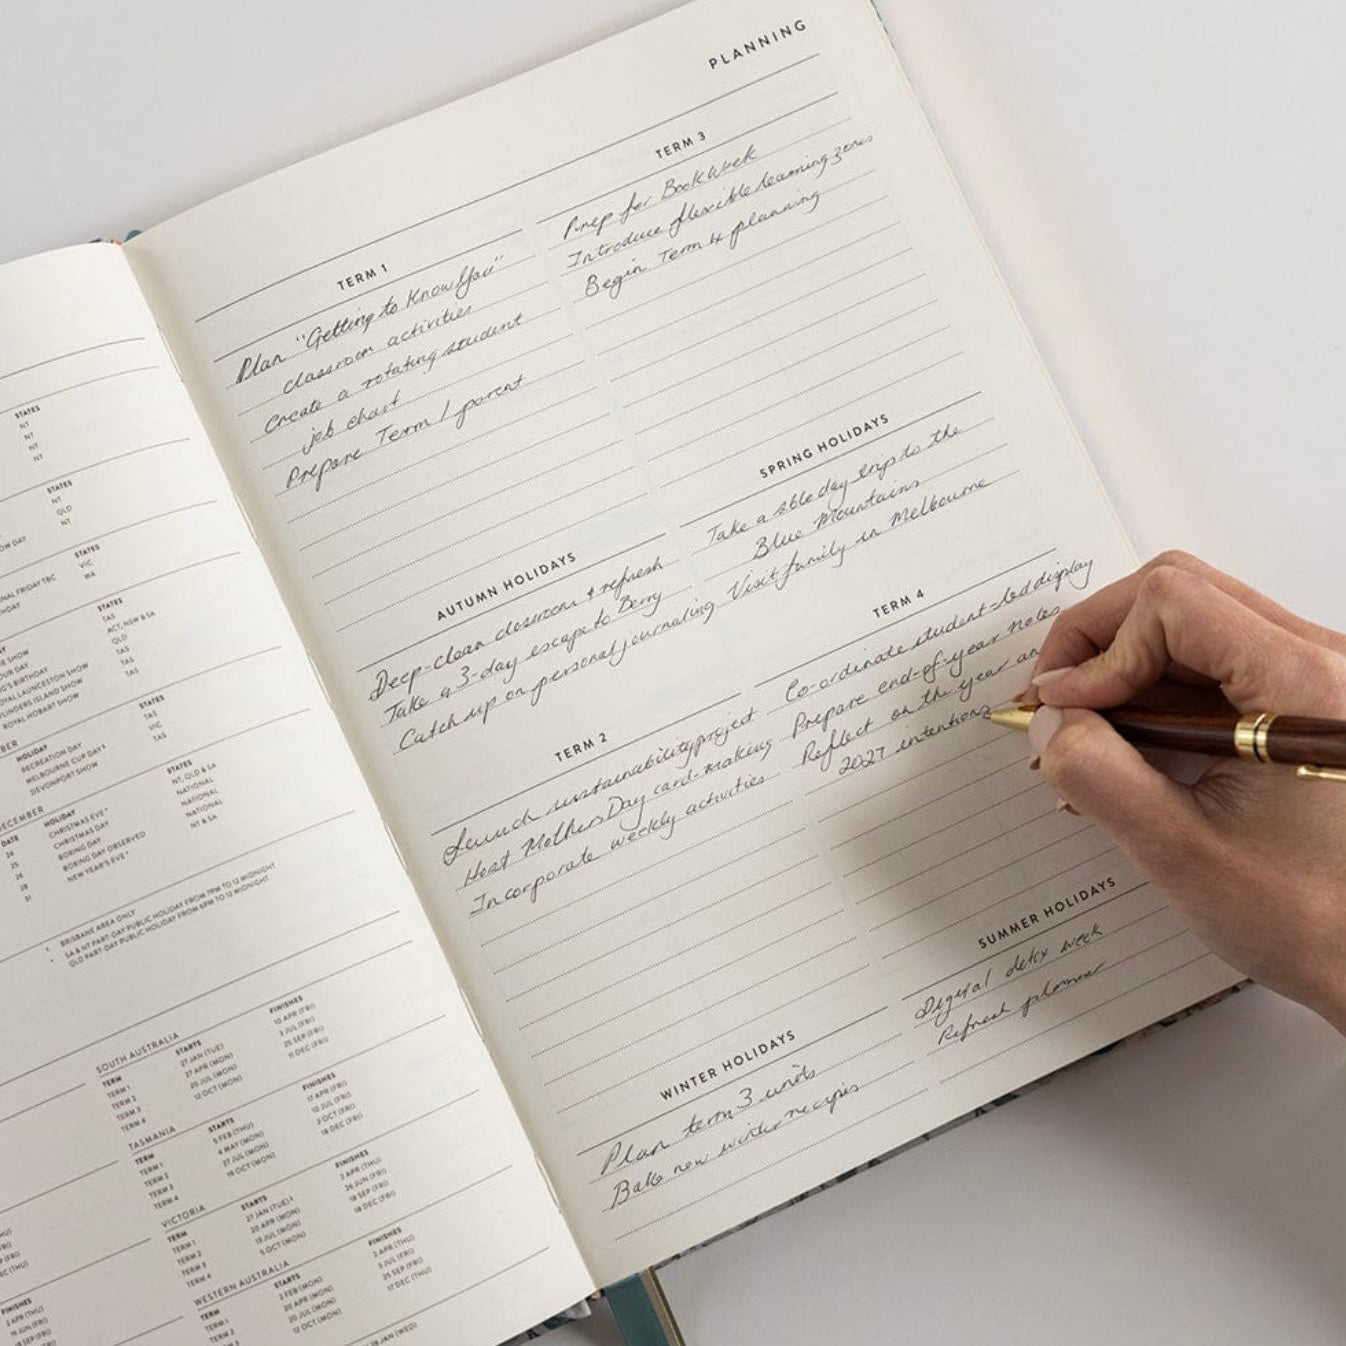 PLANNING
TERM 1
Plan "Getting to Know You"
classroom activities
Create a rotating student
job chart
Prepare Term 1 parent
AUTUMN HOLIDAYS
Deep-clean classroom + refresh
Take a 3-day escape to Berry
Catch up on personal journaling
TERM 2
Launch sustainability project
Host Mothers Day card-making
Incorporate weekly activities
WINTER HOLIDAYS
Plan term 3 units
Bake new winter recipes
TERM 3
Prep for Book Week
Introduce flexible learning zones
Begin Term 4 planning
SPRING HOLIDAYS
Take a day trip to the
Blue Mountains
Visit family in Melbourne
TERM 4
Co-ordinate student-led display
Prepare end-of-year notes
Reflect on the year an
2027 intentions
SUMMER HOLIDAYS
Digital detox week
Refresh planner
STATES
NT
NT
NT
NT
STATES
NT
QLD
NT
OW DAY
STATES
NAL FRIDAY TBC VIC
HDAY WA
STATES
TAS
ACT, NSW & SA
E SHOW QLD
OUR DAY TAS
G'S BIRTHDAY TAS
OYAL LAUNCESTON SHOW TAS
FLINDERS ISLAND SHOW TAS
ROYAL HOBART SHOW
BER
HOLIDAY STATES
RECREATION DAY TAS
MELBOURNE CUP DAY VIC
DEVONPORT SHOW TAS
DECEMBER
DATE HOLIDAY STATES
24 CHRISTMAS EVE NT, QLD & SA
25 CHRISTMAS DAY NATIONAL
26 BOXING DAY NATIONAL
28 BOXING DAY OBSERVED NATIONAL
31 NEW YEAR'S EVE NT & SA
BRISBANE AREA ONLY
SA & NT PART-DAY PUBLIC HOLIDAY FROM 7PM TO 12 MIDNIGHT
QLD PART-DAY PUBLIC HOLIDAY FROM 6PM TO 12 MIDNIGHT
SOUTH AUSTRALIA
TERM STARTS FINISHES
TERM 1 27 JAN (TUE) 10 APR (FRI)
TERM 2 27 APR (MON) 3 JUL (FRI)
TERM 3 20 JUL (MON) 25 SEP (FRI)
TERM 4 12 OCT (MON) 11 DEC (FRI)
TASMANIA
TERM STARTS FINISHES
TERM 1 5 FEB (THU) 17 APR (FRI)
TERM 2 4 MAY (MON) 10 JUL (FRI)
TERM 3 27 JUL (MON) 2 OCT (FRI)
TERM 4 19 OCT (MON) 18 DEC (FRI)
VICTORIA
TERM STARTS FINISHES
TERM 1 27 JAN (TUE) 2 APR (THU)
TERM 2 20 APR (MON) 26 JUN (FRI)
TERM 3 13 JUL (MON) 18 SEP (FRI)
TERM 4 5 OCT (MON) 18 DEC (FRI)
WESTERN AUSTRALIA
TERM STARTS FINISHES
TERM 1 2 FEB (MON) 2 APR (THU)
TERM 2 20 APR (MON) 3 JUL (FRI)
TERM 3 20 JUL (MON) 25 SEP (FRI)
12 OCT (MON) 17 DEC (THU)
FINISHES
2 APR (THU)